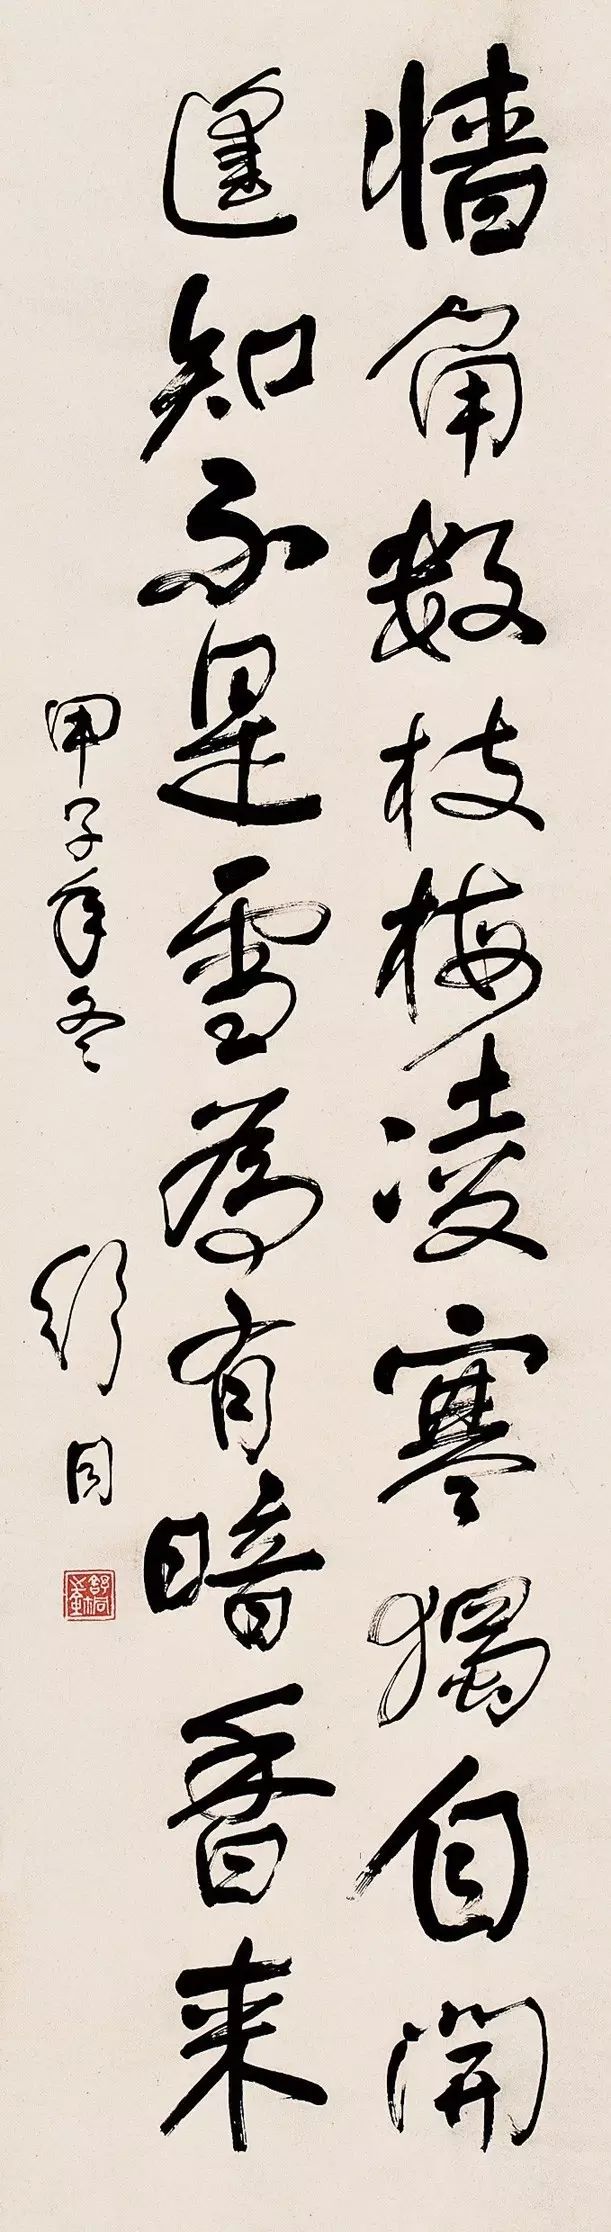 墙角数枝梅凌寒独自開
遥知不是雪為有暗香来
甲子年冬
舒同
舒同